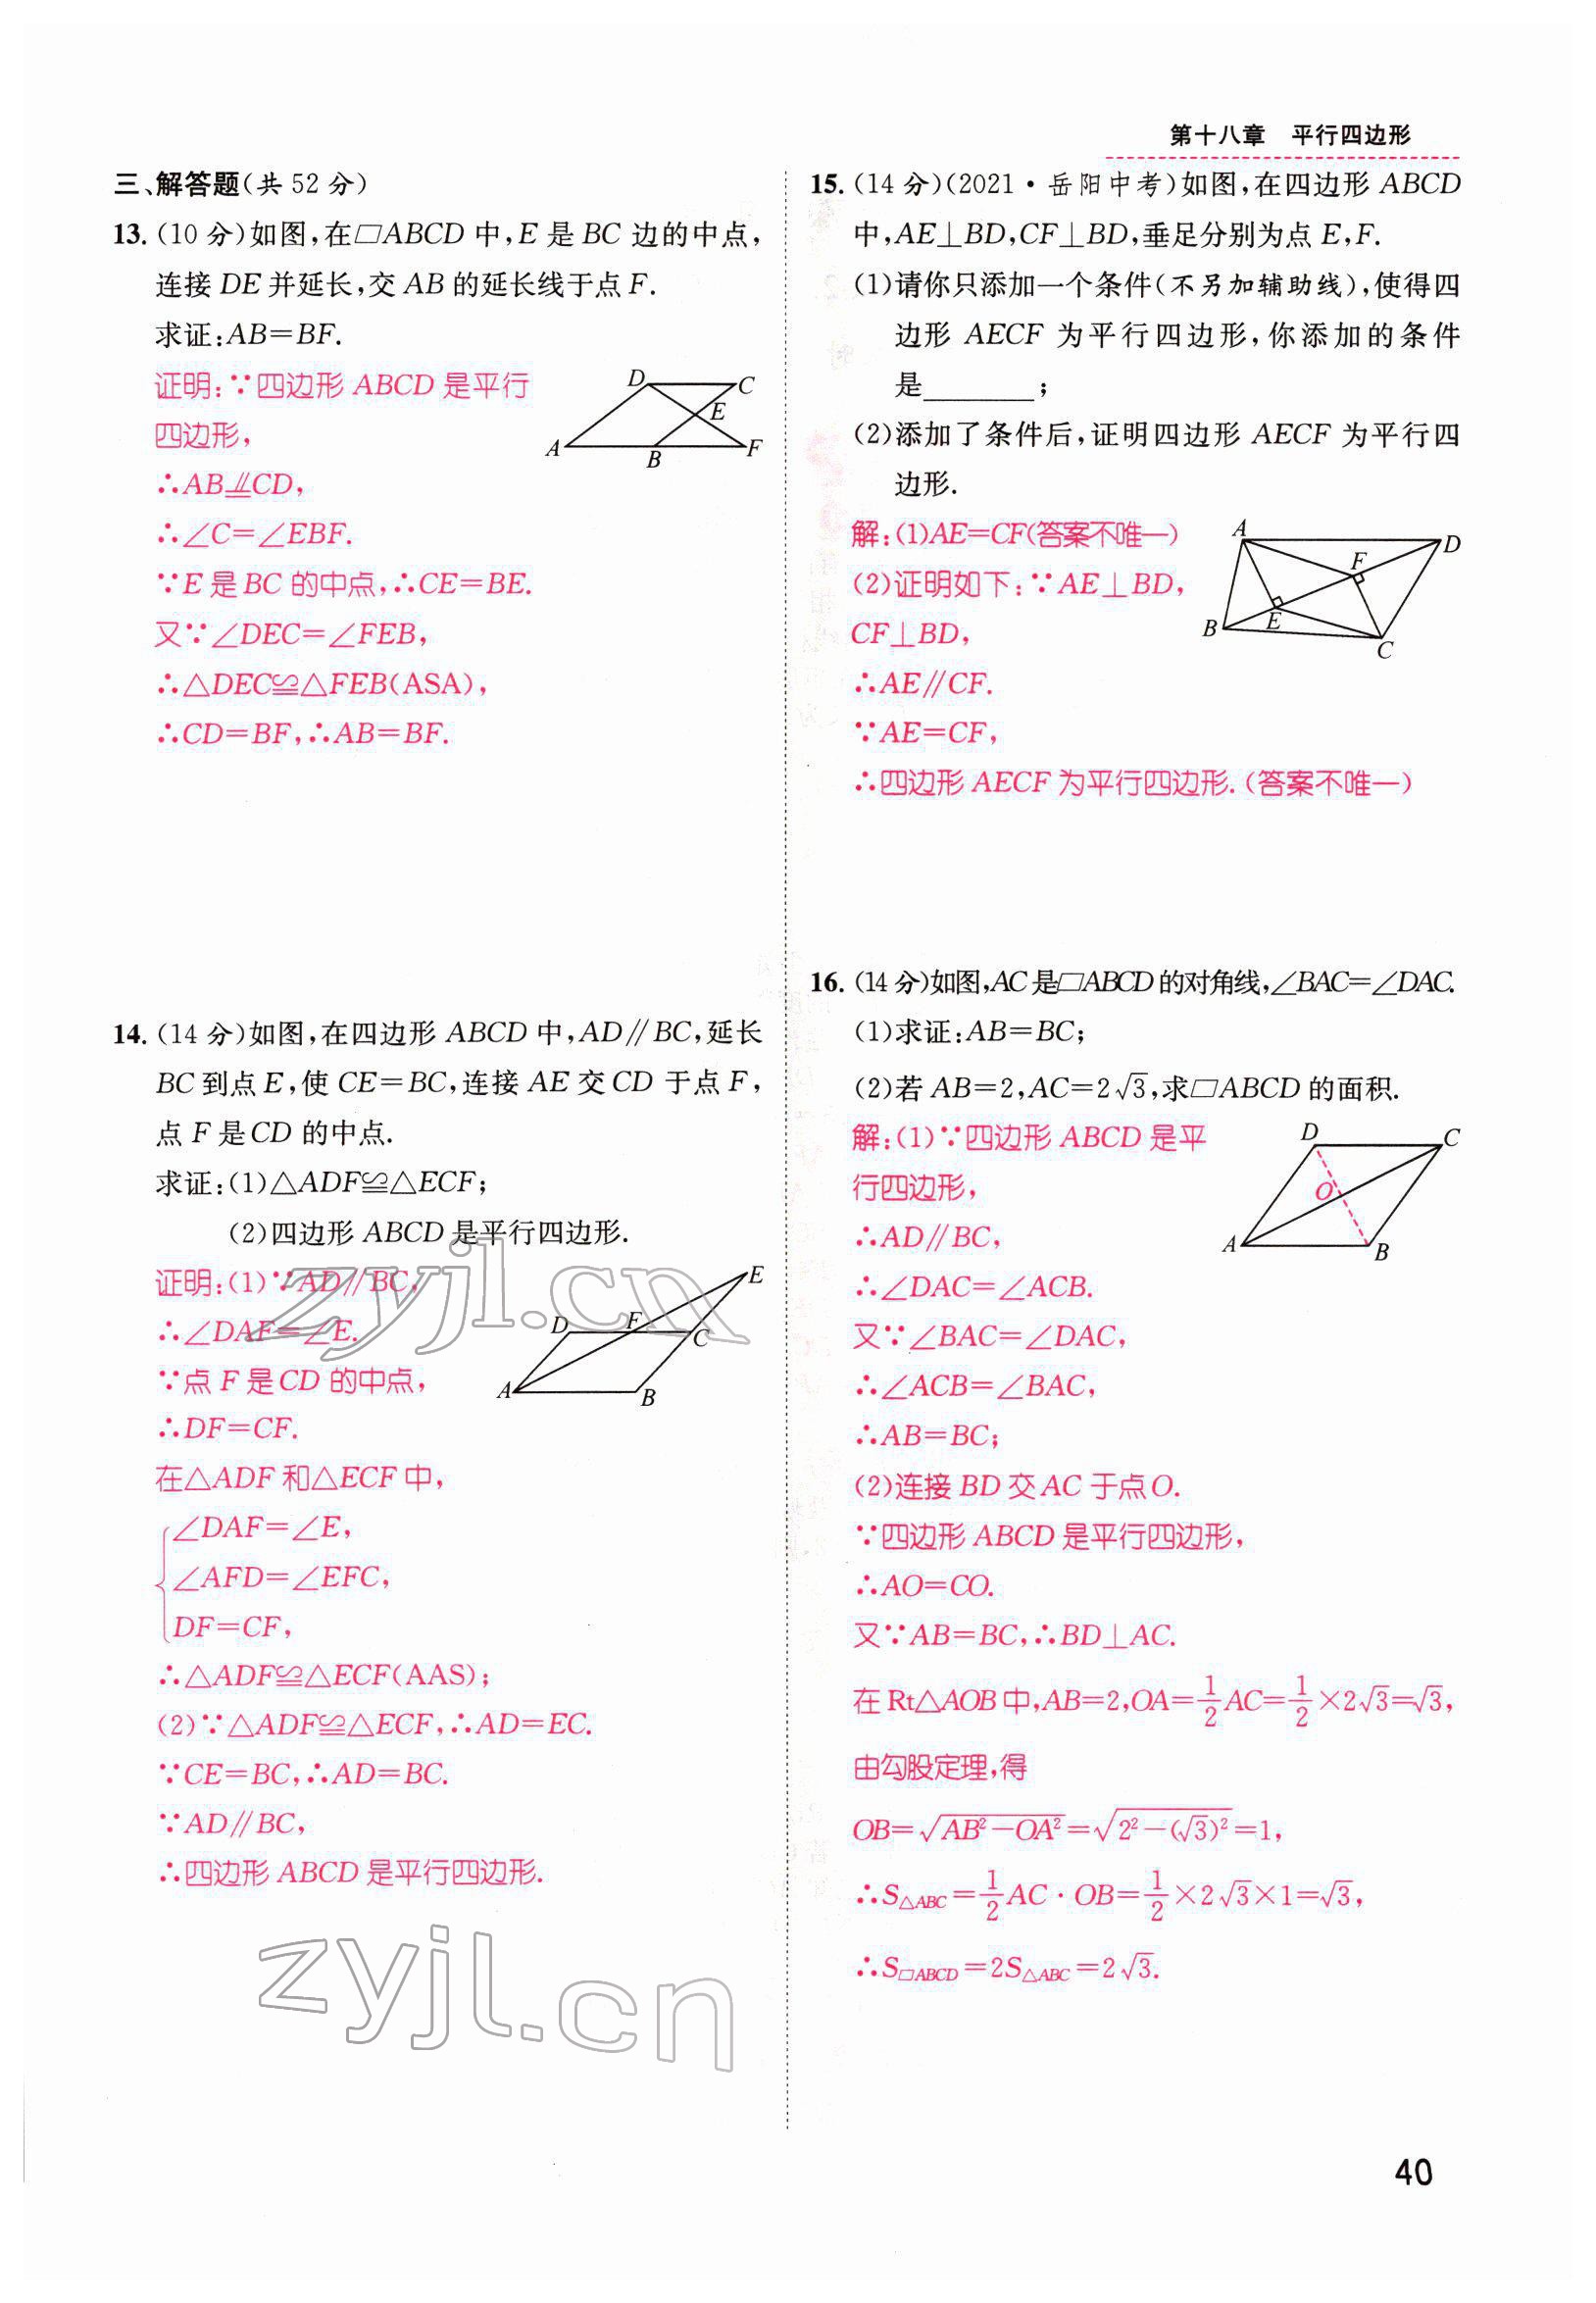 第十八章　平行四边形
三、解答题(共 52 分)
13. (10 分)如图,在□ABCD 中,E 是 BC 边的中点,
连接 DE 并延长,交 AB 的延长线于点 F.
求证:AB=BF.
证明:∵四边形 ABCD 是平行
四边形,
∴AB∥CD,
∴∠C=∠EBF.
∵E 是 BC 的中点,∴CE=BE.
又∵∠DEC=∠FEB,
∴△DEC≌△FEB(ASA),
∴CD=BF,∴AB=BF.
D
C
E
A
B
F
14. (14 分)如图,在四边形 ABCD 中,AD∥BC,延长
BC 到点 E,使 CE=BC,连接 AE 交 CD 于点 F,
点 F 是 CD 的中点.
求证:(1)△ADF≌△ECF;
(2)四边形 ABCD 是平行四边形.
证明:(1)∵AD∥BC,
∴∠DAF=∠E.
∵点 F 是 CD 的中点,
∴DF=CF.
在△ADF 和△ECF 中,
∠DAF=∠E,
∠AFD=∠EFC,
DF=CF,
∴△ADF≌△ECF(AAS);
(2)∵△ADF≌△ECF,∴AD=EC.
∵CE=BC,∴AD=BC.
∵AD∥BC,
∴四边形 ABCD 是平行四边形.
E
D
F
C
A
B
zyjl.cn
zyjl.cn
15. (14 分)(2021·岳阳中考)如图,在四边形 ABCD
中,AE⊥BD,CF⊥BD,垂足分别为点 E,F.
(1)请你只添加一个条件(不另加辅助线),使得四
边形 AECF 为平行四边形,你添加的条件
是________;
(2)添加了条件后,证明四边形 AECF 为平行四
边形.
解:(1)AE=CF(答案不唯一)
(2)证明如下:∵AE⊥BD,
CF⊥BD,
∴AE∥CF.
∵AE=CF,
∴四边形 AECF 为平行四边形.(答案不唯一)
A
D
F
B
E
C
16. (14 分)如图,AC 是□ABCD 的对角线,∠BAC=∠DAC.
(1)求证:AB=BC;
(2)若 AB=2,AC=2√3,求□ABCD 的面积.
解:(1)∵四边形 ABCD 是平
行四边形,
∴AD∥BC,
∴∠DAC=∠ACB.
又∵∠BAC=∠DAC,
∴∠ACB=∠BAC,
∴AB=BC;
(2)连接 BD 交 AC 于点 O.
∵四边形 ABCD 是平行四边形,
∴AO=CO.
又∵AB=BC,∴BD⊥AC.
在 Rt△AOB 中,AB=2,OA=1/2 AC=1/2×2√3=√3,
由勾股定理,得
OB=√(AB²−OA²)=√(2²−(√3)²)=1,
∴S△ABC=1/2 AC·OB=1/2×2√3×1=√3,
∴S□ABCD=2S△ABC=2√3.
D
C
O
A
B
40